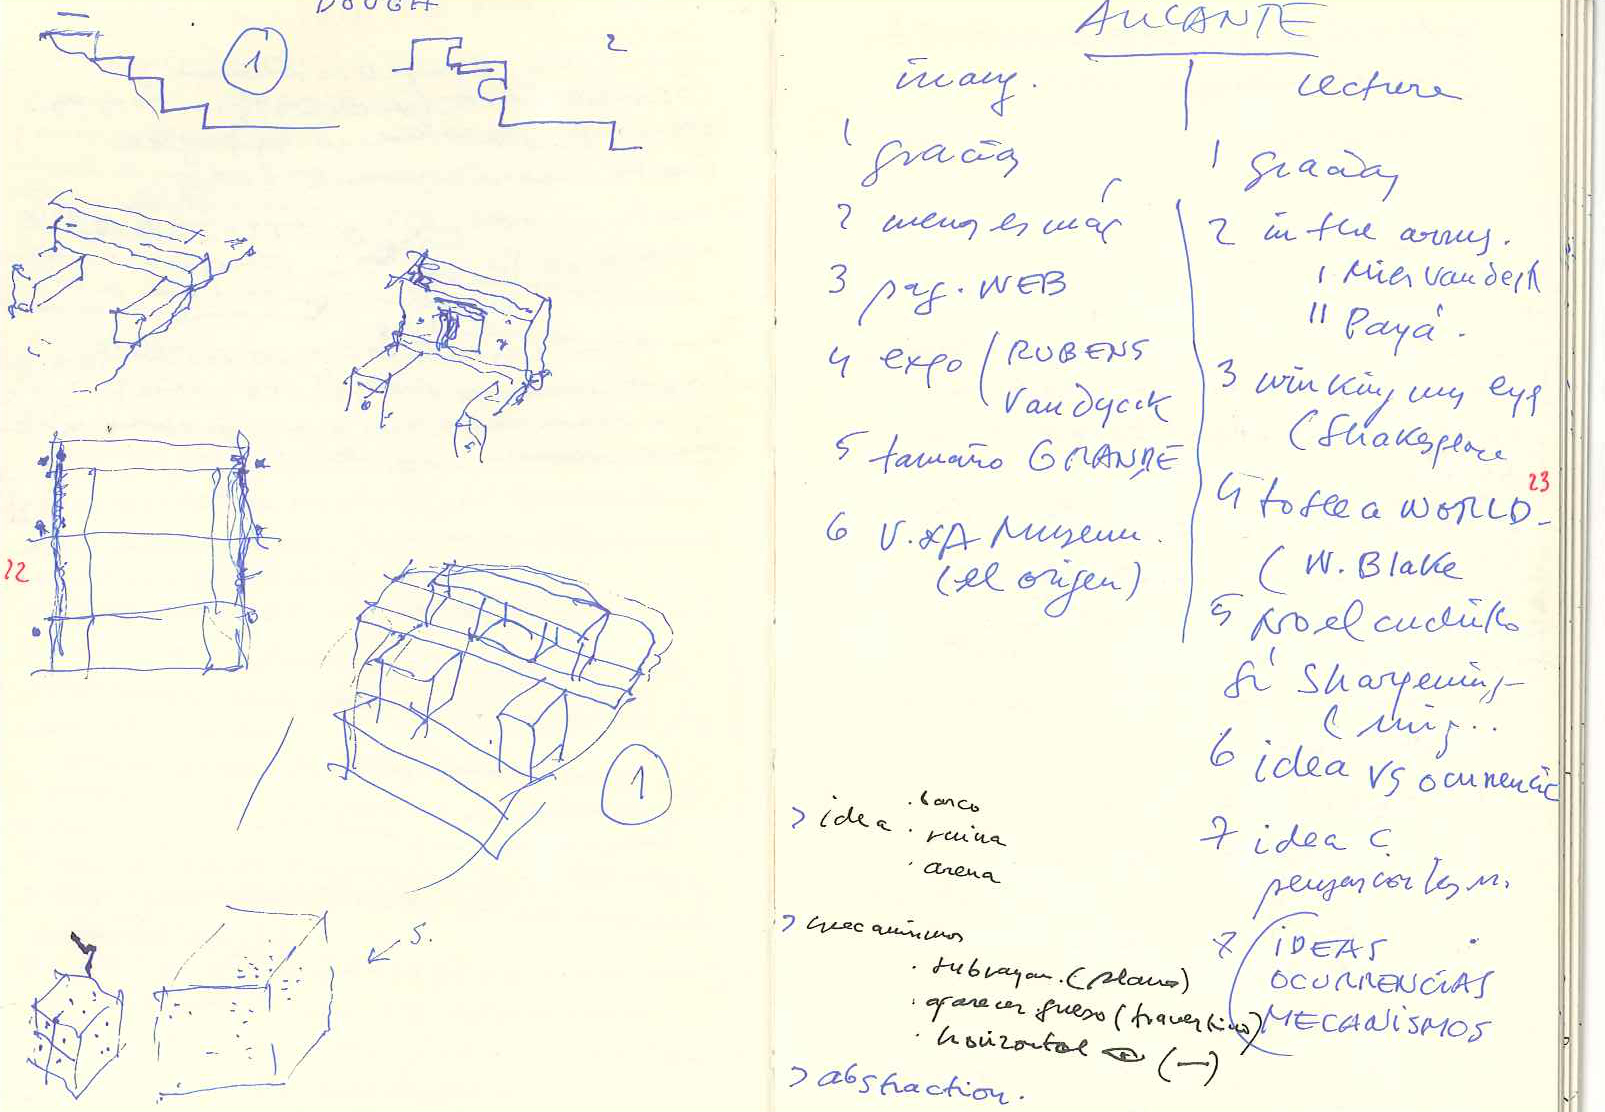 DOUGH
1
2
22
1
S.
ALICANTE
imag.
1 gracias
2 menos es más
3 pag. WEB
4 expo (RUBENS
Van Dyck
5 tamaño GRANDE
6 V.&A Museum.
(el origen)
> idea
. barco
. ruina
. arena
> mecanismos
. subrayar. (plano)
. aparecer grueso (travertino)
. horizontal (—)
> abstraction.
lecture
1 gracias
2 in the arms.
I Mies van der R
II Payá.
3 winking my eye
(Shakespeare
23
4 to see a WORLD-
(W. Blake
5 no el cuchillo
sí sharpening-
6 idea vs ocurrencia
7 idea c.
pensar con las m.
8 IDEAS
OCURRENCIAS
MECANISMOS